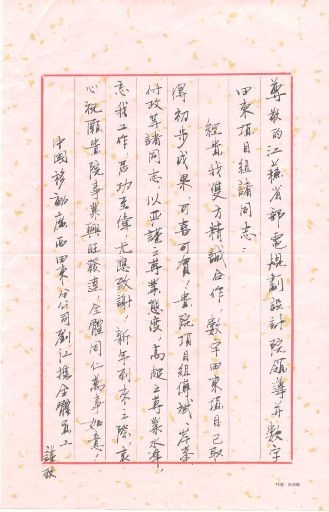 尊敬的江蘇省郵電規劃設計院領導并數字
田東項目組諸同志：
經貴我雙方精誠合作，數字田東項目已取
得初步成果，可喜可賀！貴院項目組傅斌、岸榮
付政等諸同志，以严謹之專業態度，高超之專業水準，
忘我工作，居功至偉，尤應致謝！新年到來之際，衷
心祝願貴院事業興旺發達，全體同仁萬事如意！
中國移動廣西田東分公司劉江攜全體員工
謹致